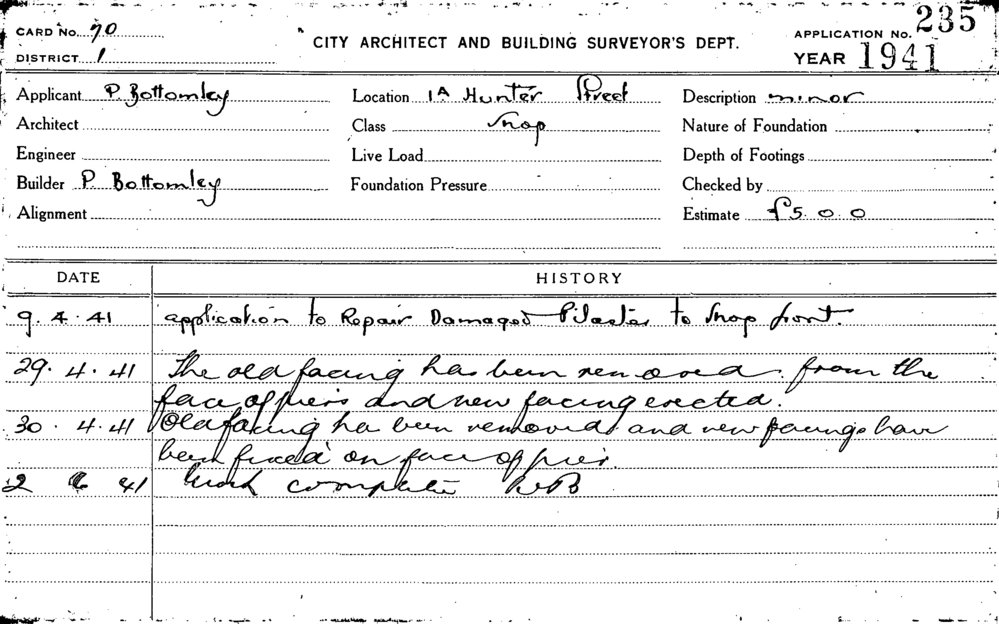 CARD No. 70
DISTRICT 1
CITY ARCHITECT AND BUILDING SURVEYOR'S DEPT.
APPLICATION No. 235
YEAR 1941
Applicant P. Bottomley
Location 1A Hunter Street
Description minor
Architect
Class Shop
Nature of Foundation
Engineer
Live Load
Depth of Footings
Builder P. Bottomley
Foundation Pressure
Checked by
Alignment
Estimate £5. 0. 0
DATE HISTORY
9. 4. 41 application to Repair Damaged Pilaster to Shop front.
29. 4. 41 The old facing has been removed from the
face of piers and new facing erected.
30. 4. 41 Old facing ha been removed and new facings have
been fixed on face of pier
2 6 41 Work complete